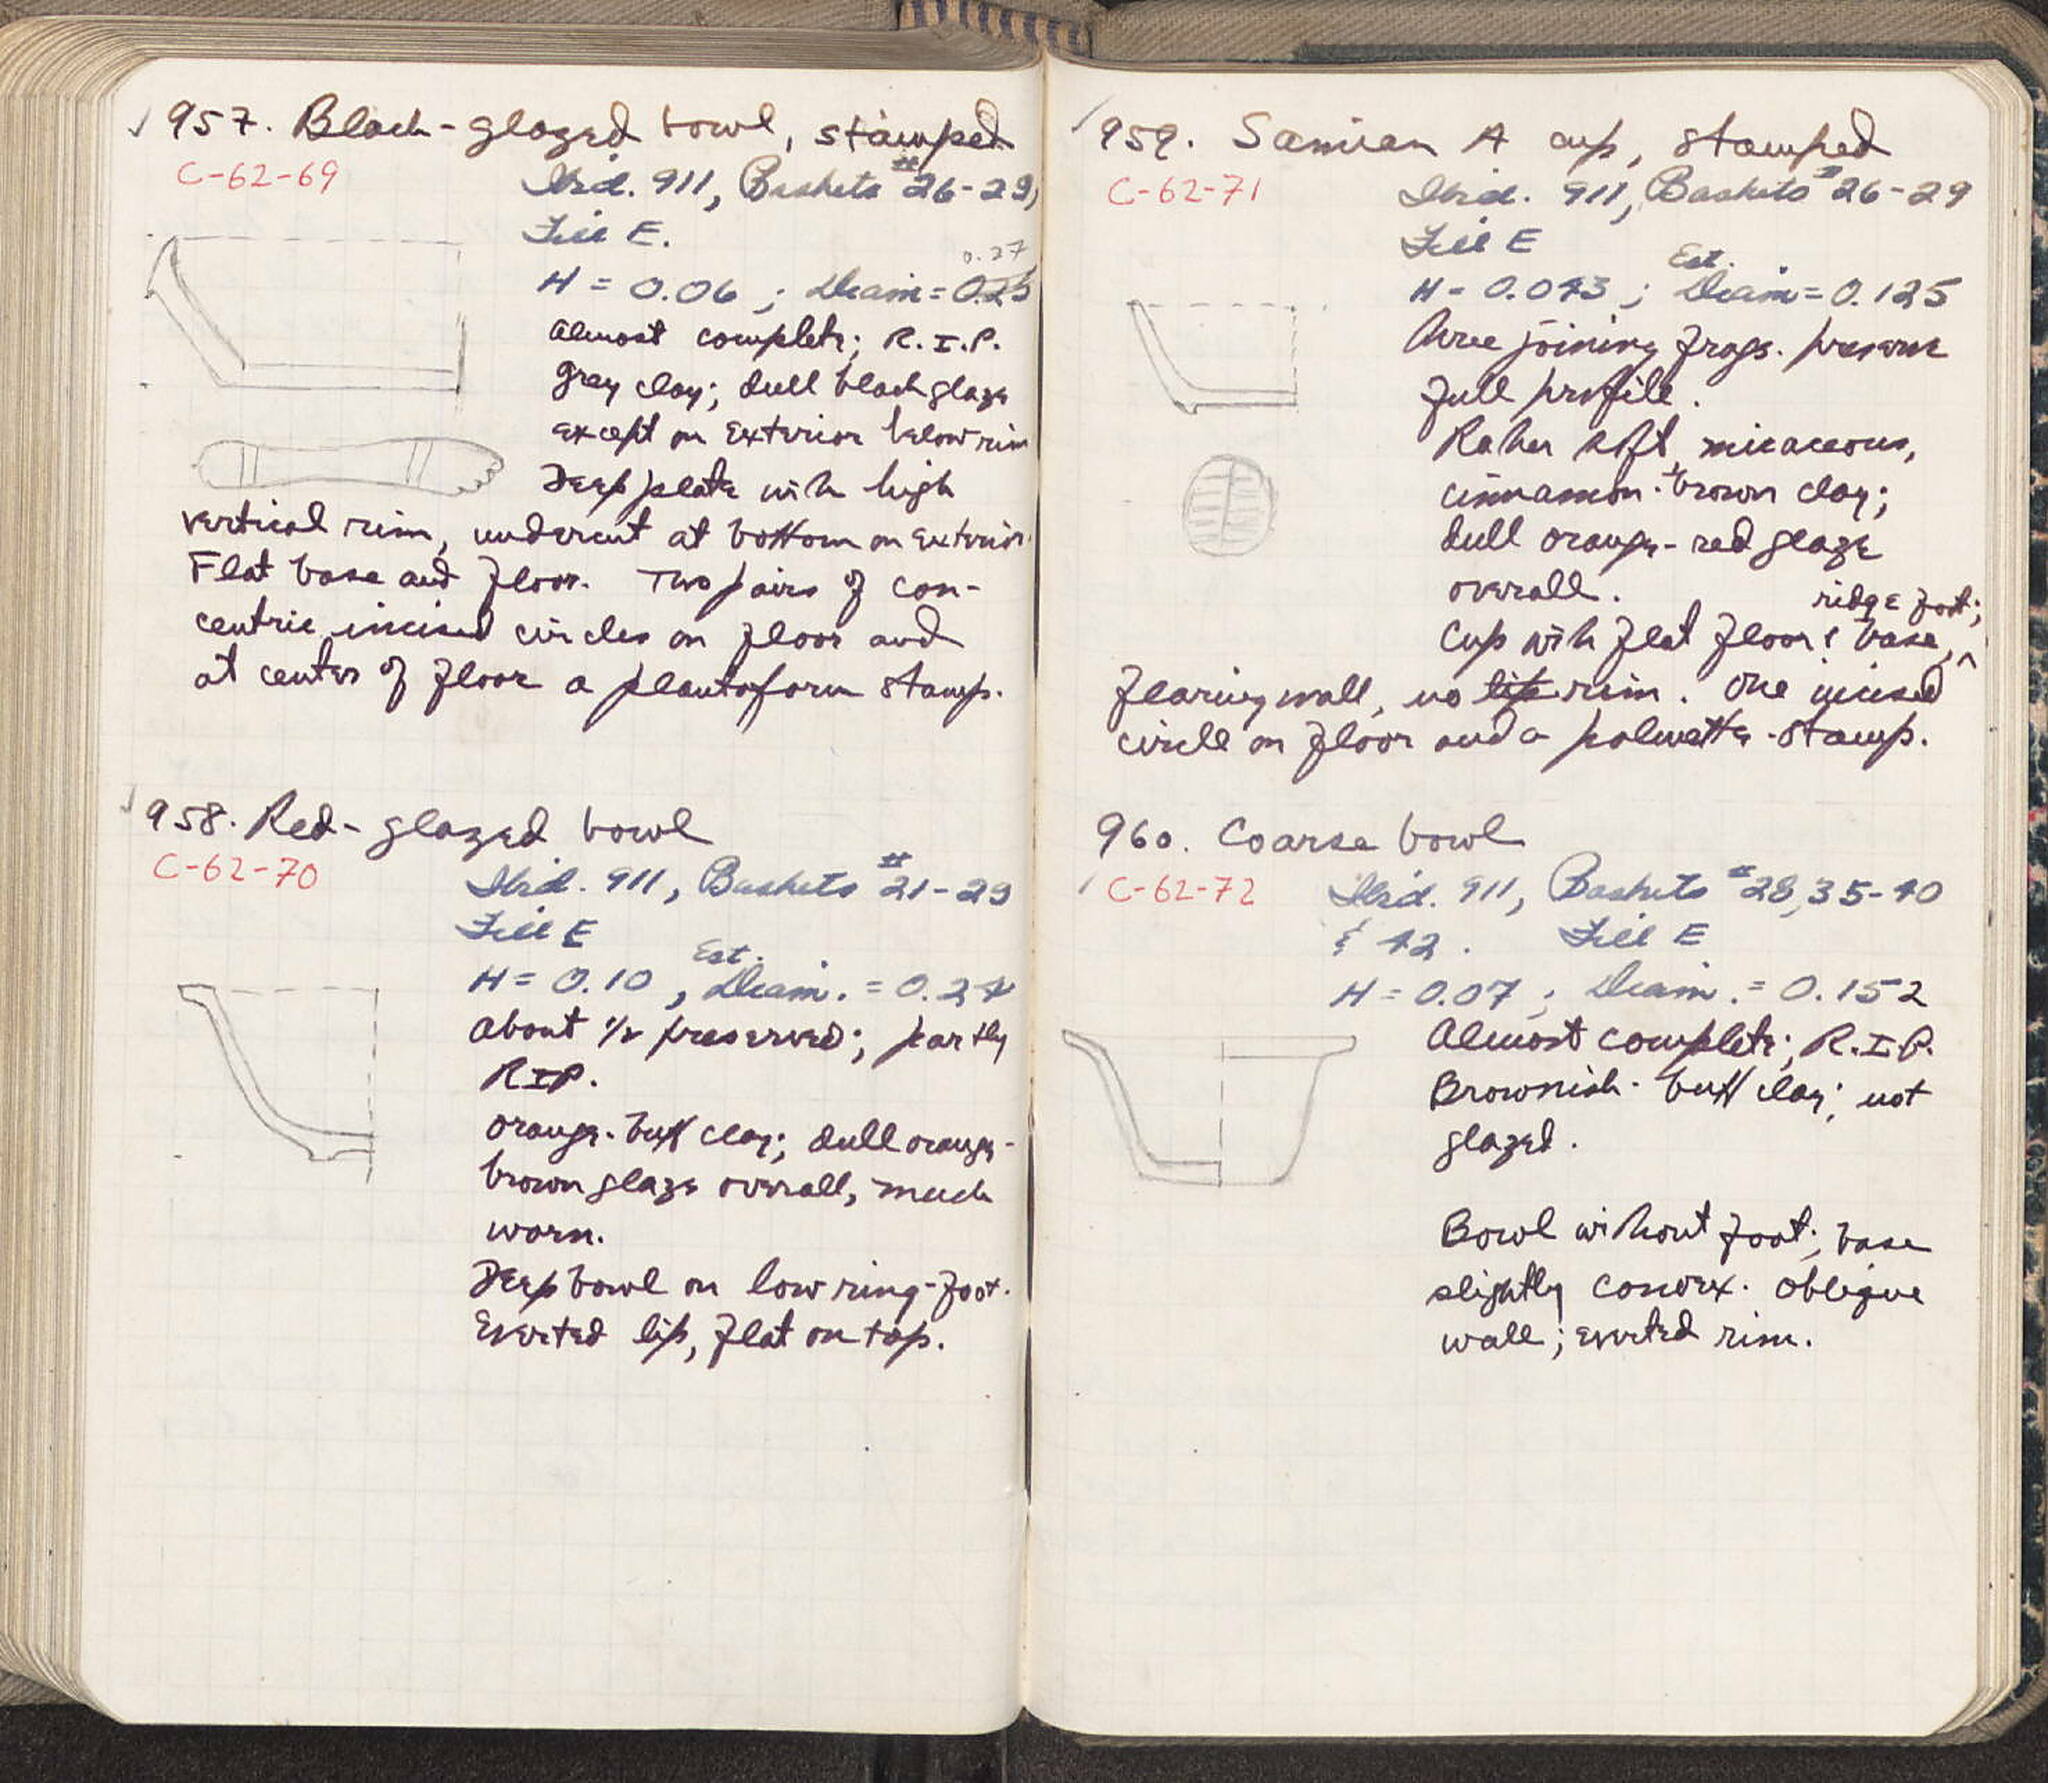 957. Black-glazed bowl, stamped
C-62-69
Ibid. 911, Baskets #26-29,
Fill E.
0.27
H = 0.06 ; Diam = 0.25
Almost complete; R.I.P.
Gray clay; dull black glaze
except on exterior below rim
Deep plate with high
vertical rim, undercut at bottom on exterior.
Flat base and floor. Two pairs of con-
centric incised circles on floor and
at center of floor a plantaform stamp.
958. Red-glazed bowl
C-62-70
Ibid. 911, Baskets #21-29
Fill E
Est.
H = 0.10 , Diam. = 0.24
About 1/2 preserved; partly
RIP.
Orange-buff clay; dull orange-
brown glaze overall, much
worn.
Deep bowl on low ring-foot.
Everted lip, flat on top.
959. Samian A cup, stamped
C-62-71
Ibid. 911, Baskets #26-29
Fill E
Est.
H = 0.043 ; Diam = 0.125
Three joining frags. preserve
full profile.
Rather soft, micaceous,
cinnamon-brown clay;
dull orange-red glaze
overall.
ridge foot;
Cup with flat floor & base, ^
flaring wall, no lip rim. One incised
circle on floor and a palmette-stamp.
960. Coarse bowl
C-62-72
Ibid. 911, Baskets #28, 35-40
& 42. Fill E
H = 0.07 ; Diam. = 0.152
Almost complete; R.I.P.
Brownish-buff clay; not
glazed.
Bowl without foot; base
slightly convex. Oblique
wall; everted rim.